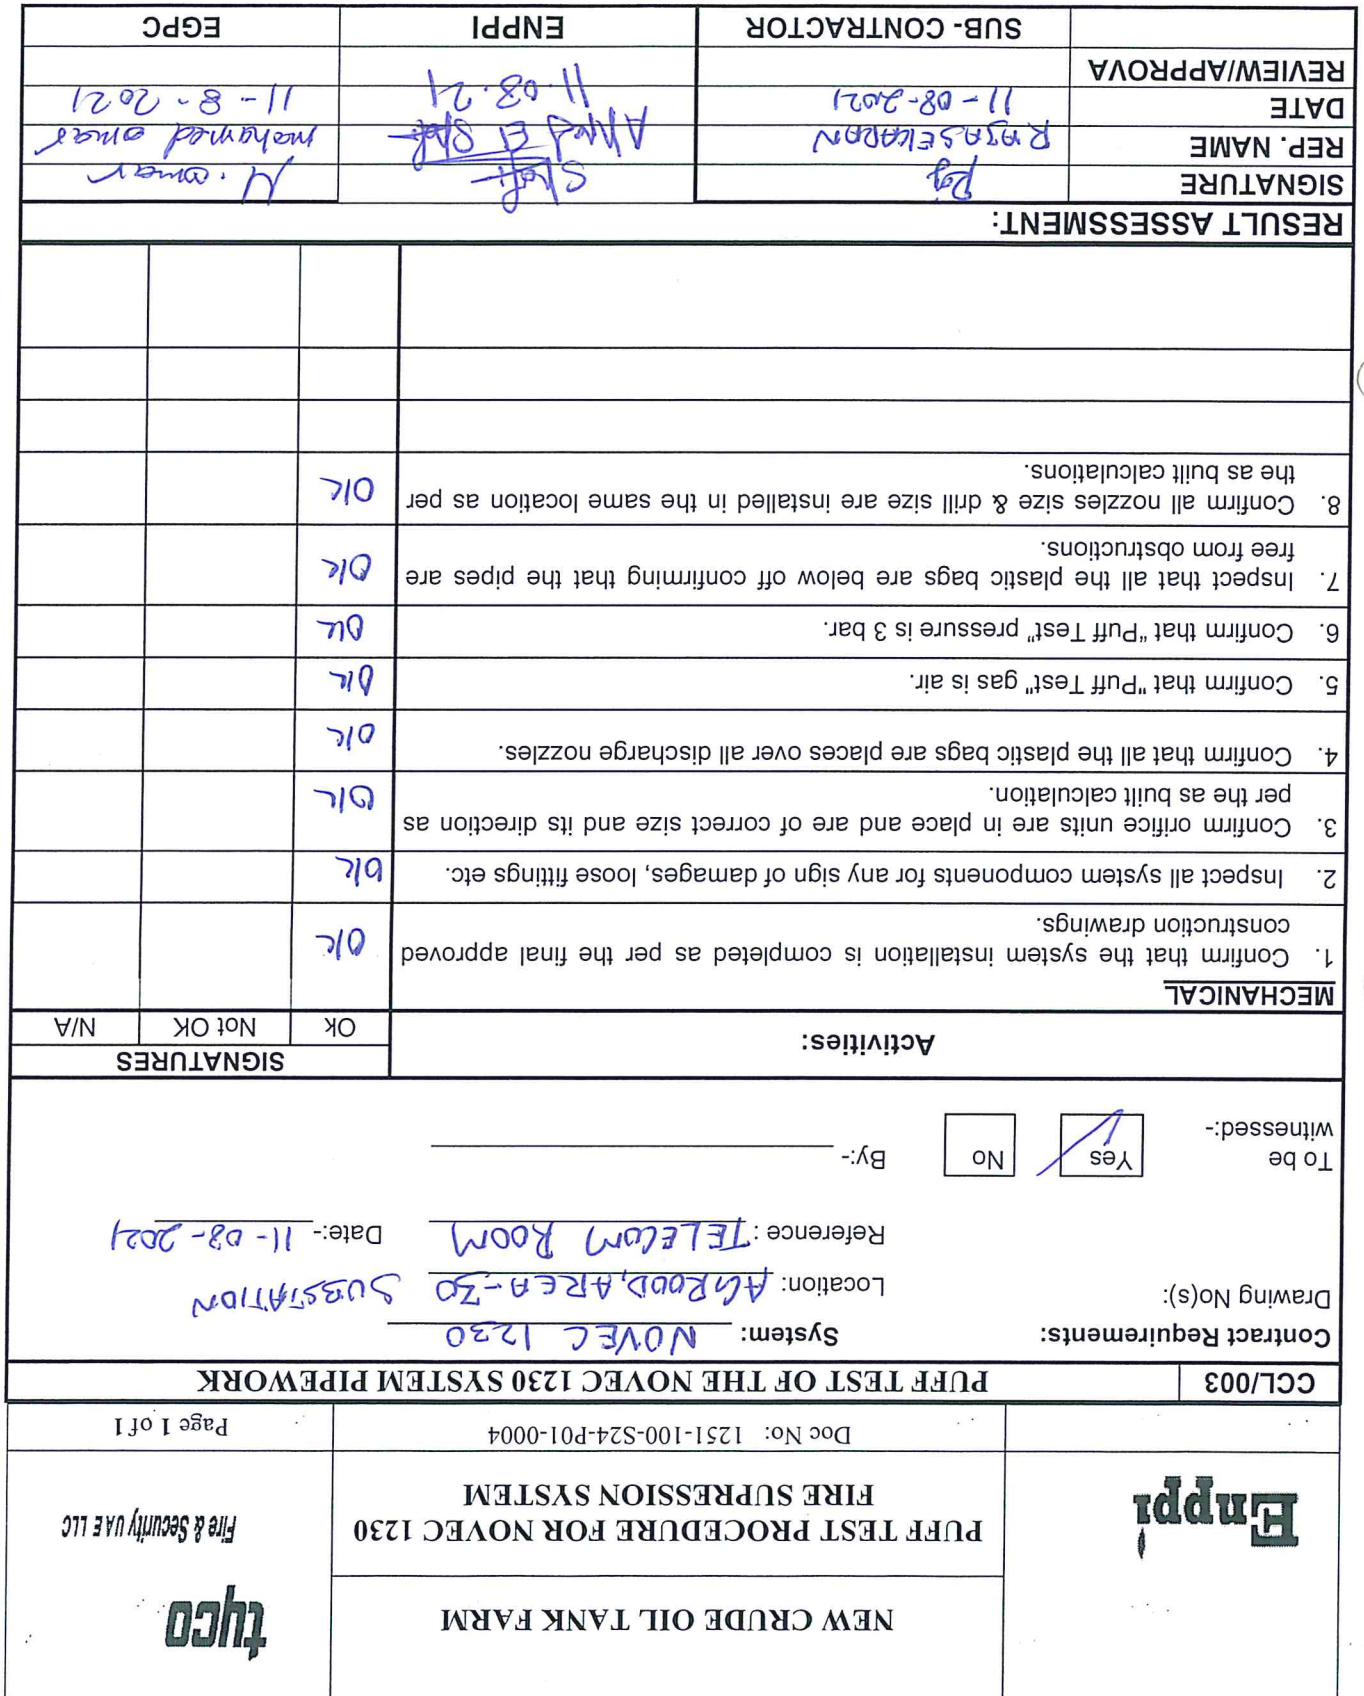 NEW CRUDE OIL TANK FARM
tyco
Fire & Security UAE LLC
Enppi
PUFF TEST PROCEDURE FOR NOVEC 1230
FIRE SUPRESSION SYSTEM
Doc No: 1251-100-S24-P01-0004
Page 1 of 1
CCL/003
PUFF TEST OF THE NOVEC 1230 SYSTEM PIPEWORK
Contract Requirements:
System: NOVEC 1230
Drawing No(s):
Location: AGROOD, AREA-30 SUBSTATION
Reference: TELECOM ROOM
Date:- 11-08-2021
To be
witnessed:-
Yes
No
By:-
Activities:
SIGNATURES
Ok
Not OK
N/A
MECHANICAL
1. Confirm that the system installation is completed as per the final approved
construction drawings.
O/K
2. Inspect all system components for any sign of damages, loose fittings etc.
O/K
3. Confirm orifice units are in place and are of correct size and its direction as
per the as built calculation.
O/K
4. Confirm that all the plastic bags are places over all discharge nozzles.
O/K
5. Confirm that "Puff Test" gas is air.
O/K
6. Confirm that "Puff Test" pressure is 3 bar.
O/K
7. Inspect that all the plastic bags are below off confirming that the pipes are
free from obstructions.
O/K
8. Confirm all nozzles size & drill size are installed in the same location as per
the as built calculations.
O/K
RESULT ASSESSMENT:
SIGNATURE
Raj
Shafi
M. omar
REP. NAME
RAJASEKARAN
Ahmed El Shafi
mohamed omar
DATE
11-08-2021
11.08.21
11-8-2021
REVIEW/APPROVA
SUB- CONTRACTOR
ENPPI
EGPC